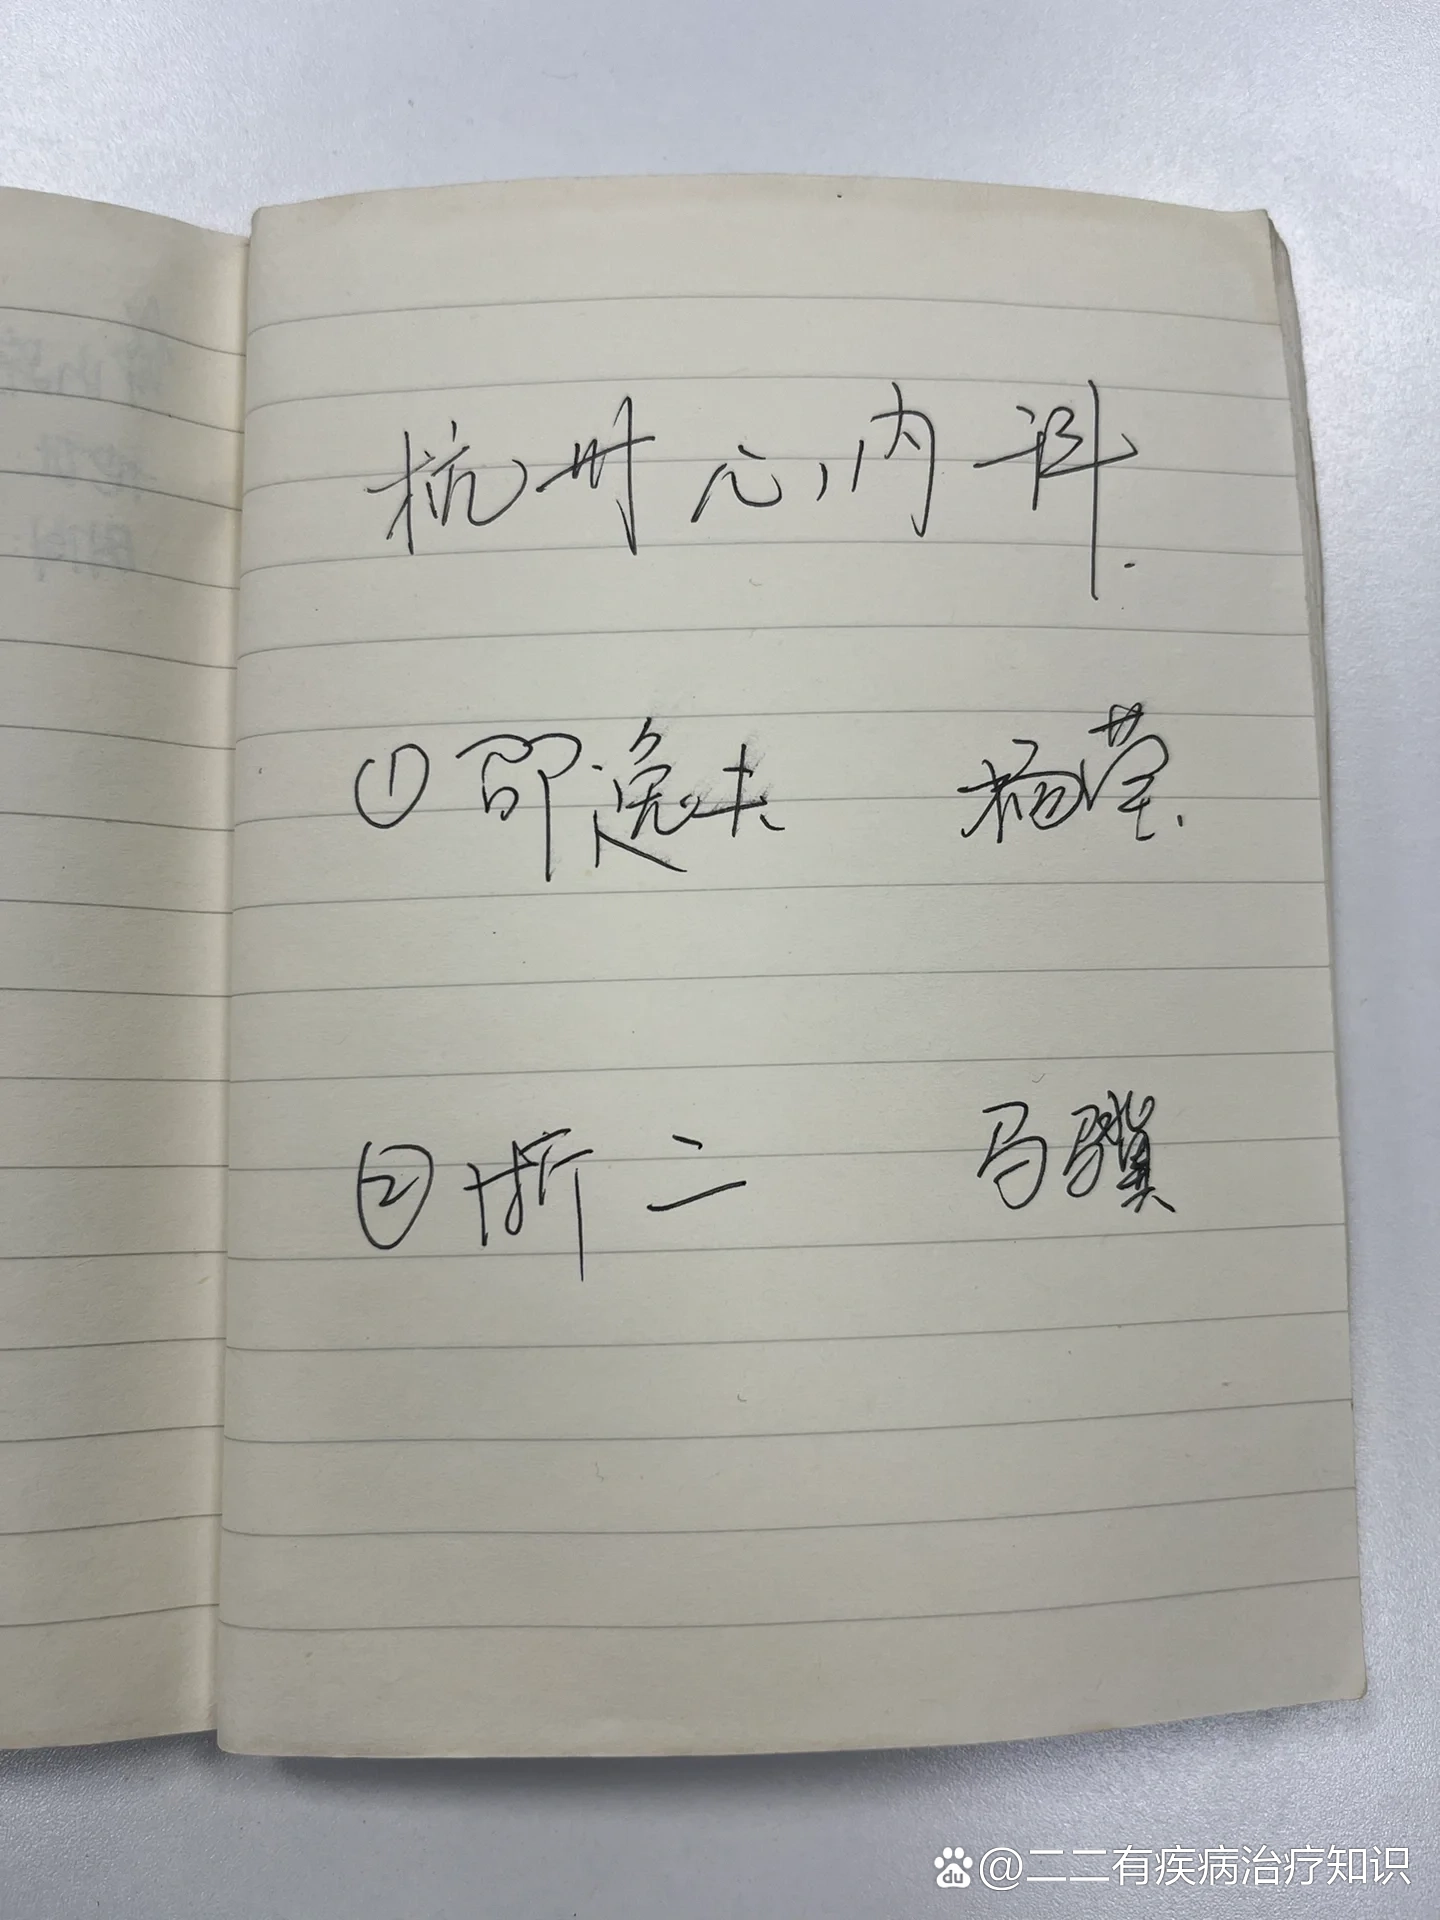 杭州心内科.
①邵逸夫 杨莹.
②浙二 马骥
@二二有疾病治疗知识